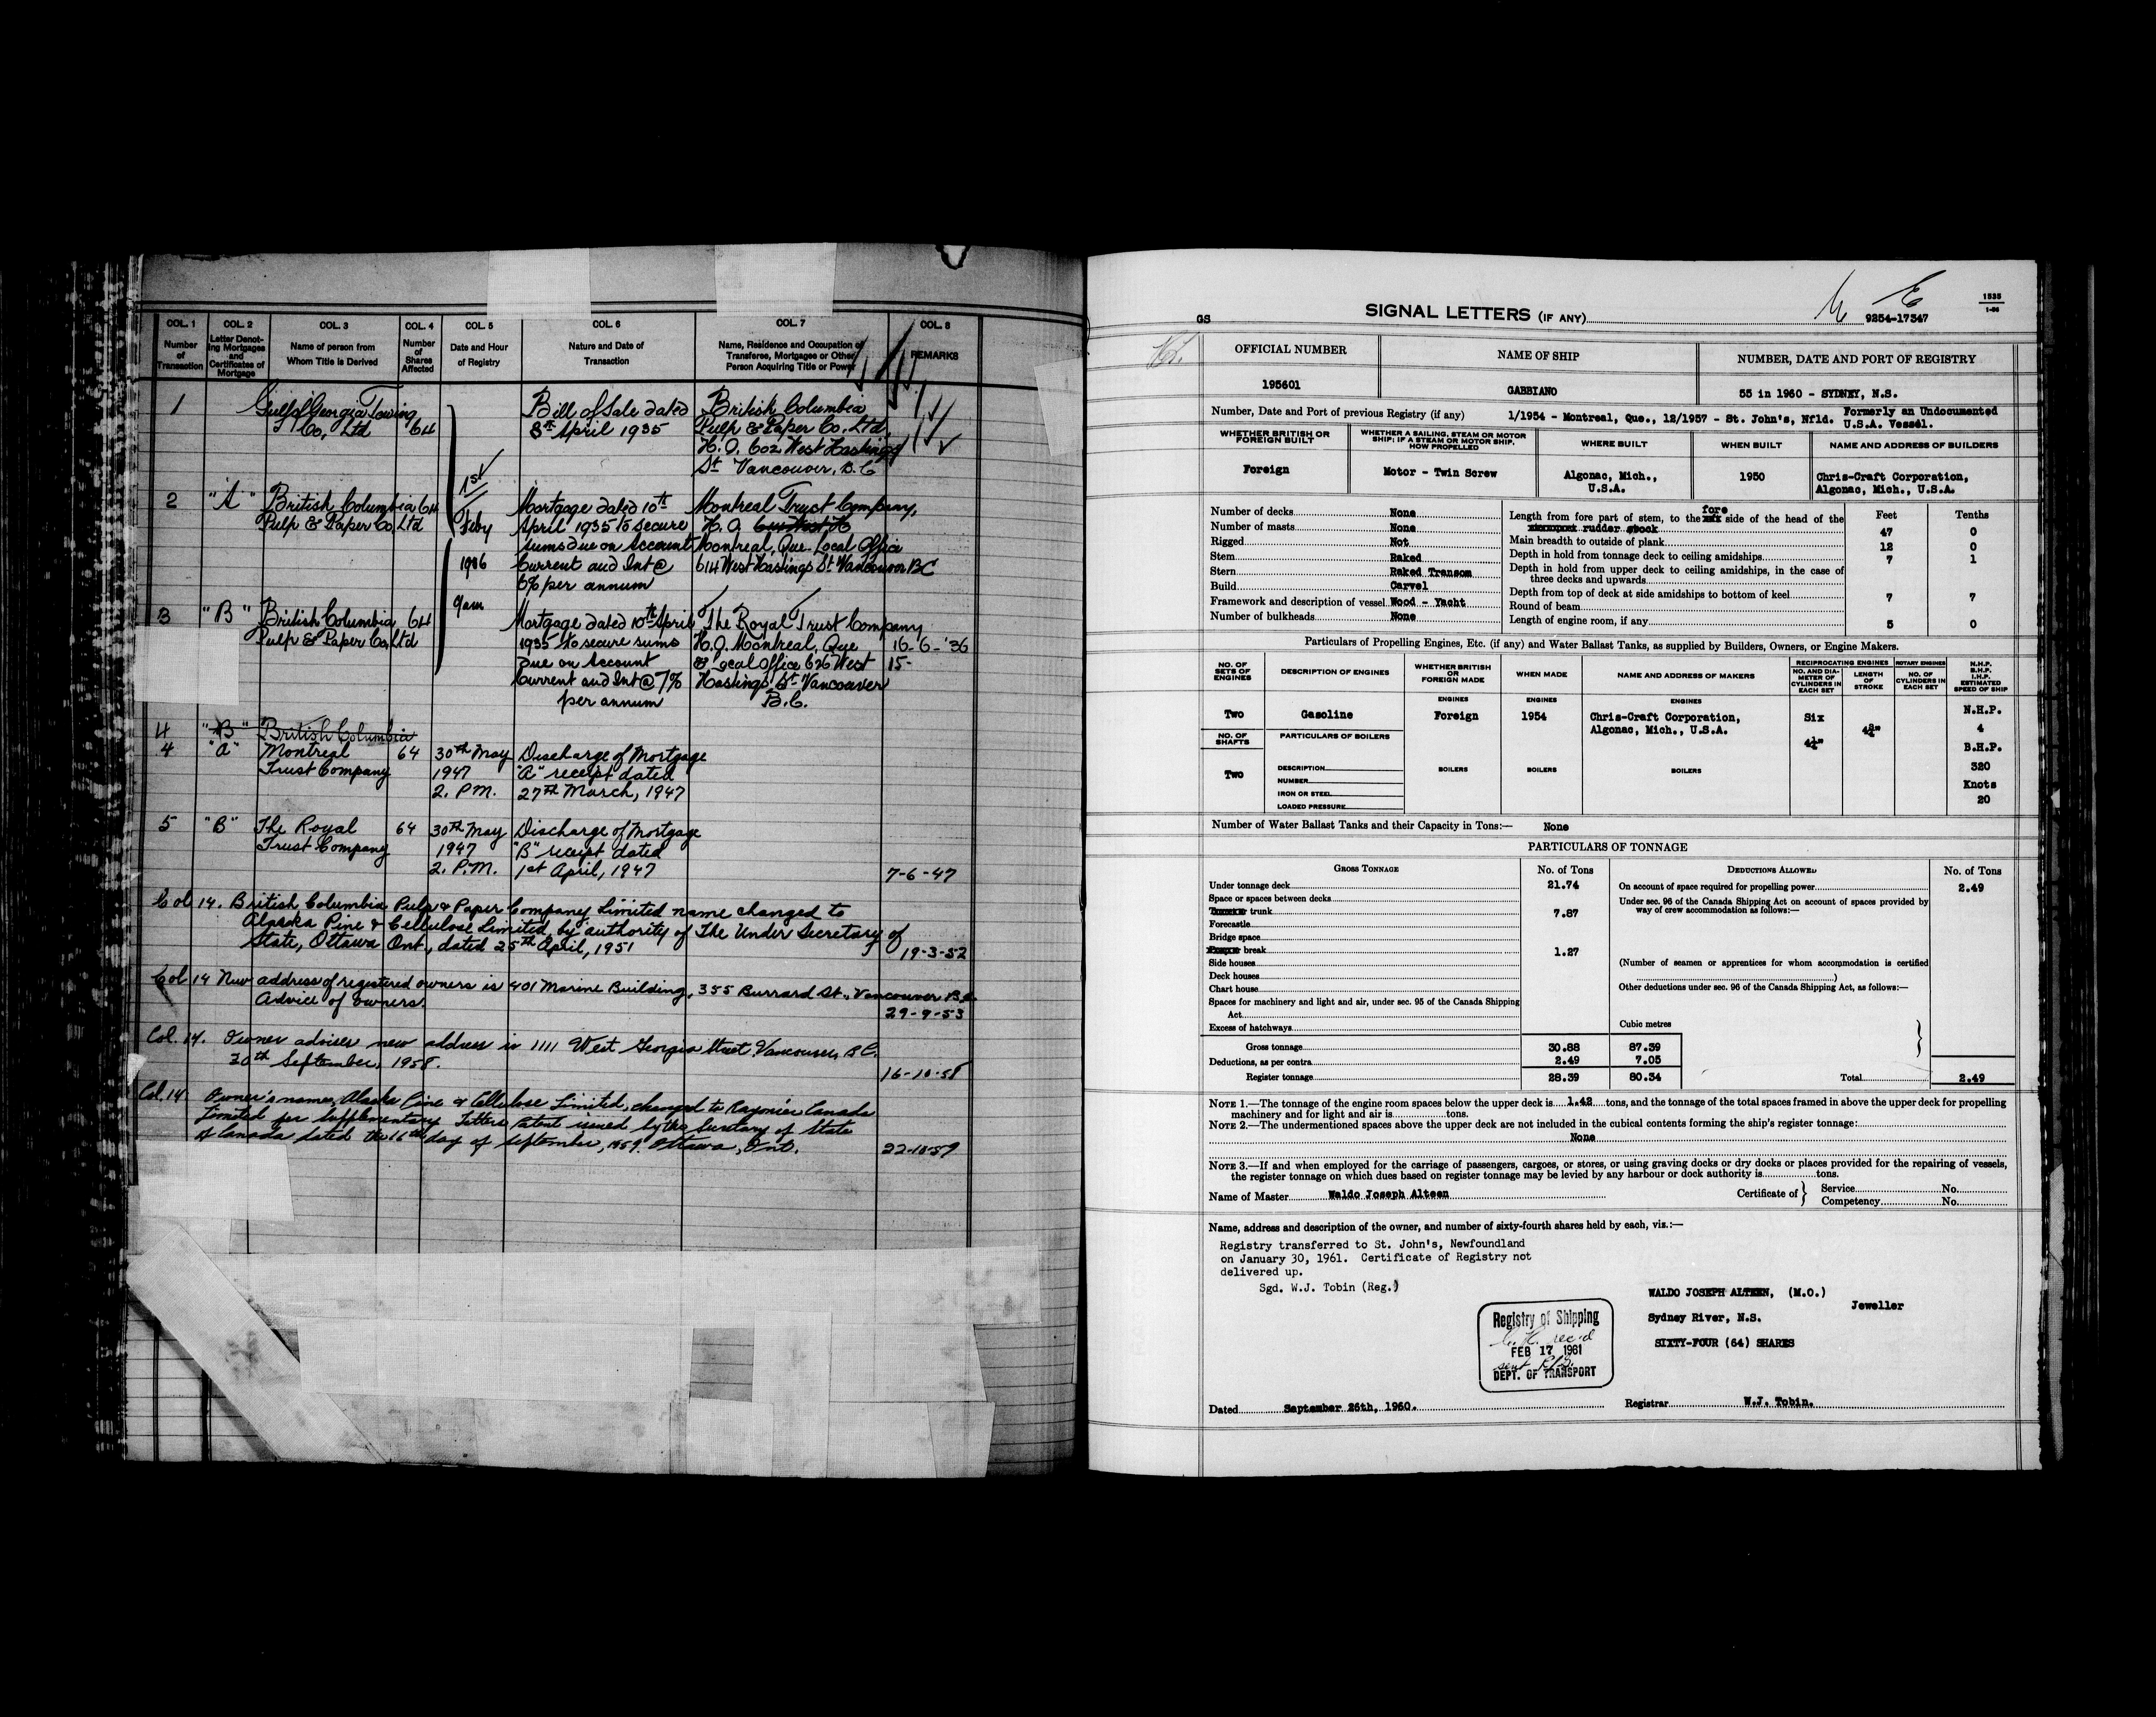 COL. 1 COL. 2 COL. 3 COL. 4 COL. 5 COL. 6 COL. 7 COL. 8
Number of Transaction
Letter Denoting Mortgages and Certificates of Mortgage
Name of person from Whom Title is Derived
Number of Shares Affected
Date and Hour of Registry
Nature and Date of Transaction
Name, Residence and Occupation of Transferee, Mortgages or Other Person Acquiring Title or Power
REMARKS
1 Gulf of Georgia Towing Bill of Sale dated British Columbia
Co, Ltd 64 8th April 1935 Pulp & Paper Co. Ltd
H.O. 602 West Hastings
St Vancouver, B.C
1st
2 "A" British Columbia 64 Mortgage dated 10th Montreal Trust Company,
Pulp & Paper Co, Ltd Feby April 1935 to secure H.O.
sums due on Account Montreal, Que. Local Office
1936 Current and Int @ 614 West Hastings St Vancouver BC
6% per annum
9am
3 "B" British Columbia 64 Mortgage dated 10th April The Royal Trust Company
Pulp & Paper Co, Ltd 1935 to secure sums H.O. Montreal, Que 16-6-'36
due on Account & Local Office 626 West 15-
Current and Int @ 7% Hastings St Vancouver
per annum B.C.
4 "B" British Columbia
4 "A" Montreal 64 30th May Discharge of Mortgage
Trust Company 1947 "A" receipt dated
2. P.M. 27th March, 1947
5 "B" The Royal 64 30th May Discharge of Mortgage
Trust Company 1947 "B" receipt dated
2. P.M. 1st April, 1947 7-6-47
Col 14. British Columbia Pulp & Paper Company Limited name changed to
Alaska Pine & Cellulose Limited by authority of The Under Secretary of
State, Ottawa Ont, dated 25th April, 1951 19-3-52
Col 14 New address of registered owners is 401 Marine Building, 355 Burrard St., Vancouver B.C.
Advice of owners. 29-9-53
Col. 14. Owner advises new address is 1111 West Georgia Street Vancouver, B.C.
30th September, 1958. 16-10-58
Col. 14 Owner's name, Alaska Pine & Cellulose Limited, changed to Rayonier Canada
Limited per Supplementary Letters Patent issued by the Secretary of State
of Canada dated the 16th day of September, 1959. Ottawa, Ont. 22-10-59
1535
1-56
GS SIGNAL LETTERS (IF ANY) 9254-17347
OFFICIAL NUMBER NAME OF SHIP NUMBER, DATE AND PORT OF REGISTRY
195601 GABBIANO 55 in 1960 - SYDNEY, N.S.
Number, Date and Port of previous Registry (if any) 1/1954 - Montreal, Que., 12/1957 - St. John's, Nfld. Formerly an Undocumented
U.S.A. Vessel.
WHETHER BRITISH OR FOREIGN BUILT
WHETHER A SAILING, STEAM OR MOTOR SHIP; IF A STEAM OR MOTOR SHIP, HOW PROPELLED
WHERE BUILT WHEN BUILT NAME AND ADDRESS OF BUILDERS
Foreign Motor - Twin Screw Algonac, Mich., 1950 Chris-Craft Corporation,
U.S.A. Algonac, Mich., U.S.A.
Number of decks None
Number of masts None
Rigged Not
Stem Raked
Stern Raked Transom
Build Carvel
Framework and description of vessel Wood - Yacht
Number of bulkheads None
Feet Tenths
Length from fore part of stem, to the fore side of the head of the
rudder stock 47 0
Main breadth to outside of plank 12 0
Depth in hold from tonnage deck to ceiling amidships 7 1
Depth in hold from upper deck to ceiling amidships, in the case of
three decks and upwards
Depth from top of deck at side amidships to bottom of keel 7 7
Round of beam
Length of engine room, if any 5 0
Particulars of Propelling Engines, Etc. (if any) and Water Ballast Tanks, as supplied by Builders, Owners, or Engine Makers.
NO. OF SETS OF ENGINES
DESCRIPTION OF ENGINES
WHETHER BRITISH OR FOREIGN MADE
WHEN MADE
NAME AND ADDRESS OF MAKERS
RECIPROCATING ENGINES ROTARY ENGINES
NO. AND DIAMETER OF CYLINDERS IN EACH SET
LENGTH OF STROKE
NO. OF CYLINDERS IN EACH SET
N.H.P. B.H.P. I.H.P. ESTIMATED SPEED OF SHIP
ENGINES ENGINES ENGINES
Two Gasoline Foreign 1954 Chris-Craft Corporation, Six N.H.P.
Algonac, Mich., U.S.A. 4
NO. OF SHAFTS PARTICULARS OF BOILERS B.H.P.
Two DESCRIPTION BOILERS BOILERS BOILERS 320
NUMBER Knots
IRON OR STEEL 20
LOADED PRESSURE
Number of Water Ballast Tanks and their Capacity in Tons:— None
PARTICULARS OF TONNAGE
GROSS TONNAGE No. of Tons DEDUCTIONS ALLOWED No. of Tons
Under tonnage deck 21.74 On account of space required for propelling power 2.49
Space or spaces between decks Under sec. 96 of the Canada Shipping Act on account of spaces provided by
way of crew accommodation as follows:—
trunk 7.87
Forecastle
Bridge space
break 1.27
Side houses (Number of seamen or apprentices for whom accommodation is certified
Deck houses )
Chart house Other deductions under sec. 96 of the Canada Shipping Act, as follows:—
Spaces for machinery and light and air, under sec. 95 of the Canada Shipping
Act
Excess of hatchways Cubic metres
Gross tonnage 30.88 87.39
Deductions, as per contra 2.49 7.05
Register tonnage 28.39 80.34 Total 2.49
NOTE 1.—The tonnage of the engine room spaces below the upper deck is 1.42 tons, and the tonnage of the total spaces framed in above the upper deck for propelling
machinery and for light and air is tons.
NOTE 2.—The undermentioned spaces above the upper deck are not included in the cubical contents forming the ship's register tonnage:
None
NOTE 3.—If and when employed for the carriage of passengers, cargoes, or stores, or using graving docks or dry docks or places provided for the repairing of vessels,
the register tonnage on which dues based on register tonnage may be levied by any harbour or dock authority is tons.
Name of Master Waldo Joseph Alteen Certificate of Service No.
Competency No.
Name, address and description of the owner, and number of sixty-fourth shares held by each, viz.:—
Registry transferred to St. John's, Newfoundland
on January 30, 1961. Certificate of Registry not
delivered up.
Sgd. W.J. Tobin (Reg.)
WALDO JOSEPH ALTEEN, (M.O.)
Jeweller
Sydney River, N.S.
SIXTY-FOUR (64) SHARES
Registry of Shipping
rec'd
FEB 17 1961
sent
DEPT. OF TRANSPORT
Dated September 26th, 1960. Registrar W.J. Tobin.